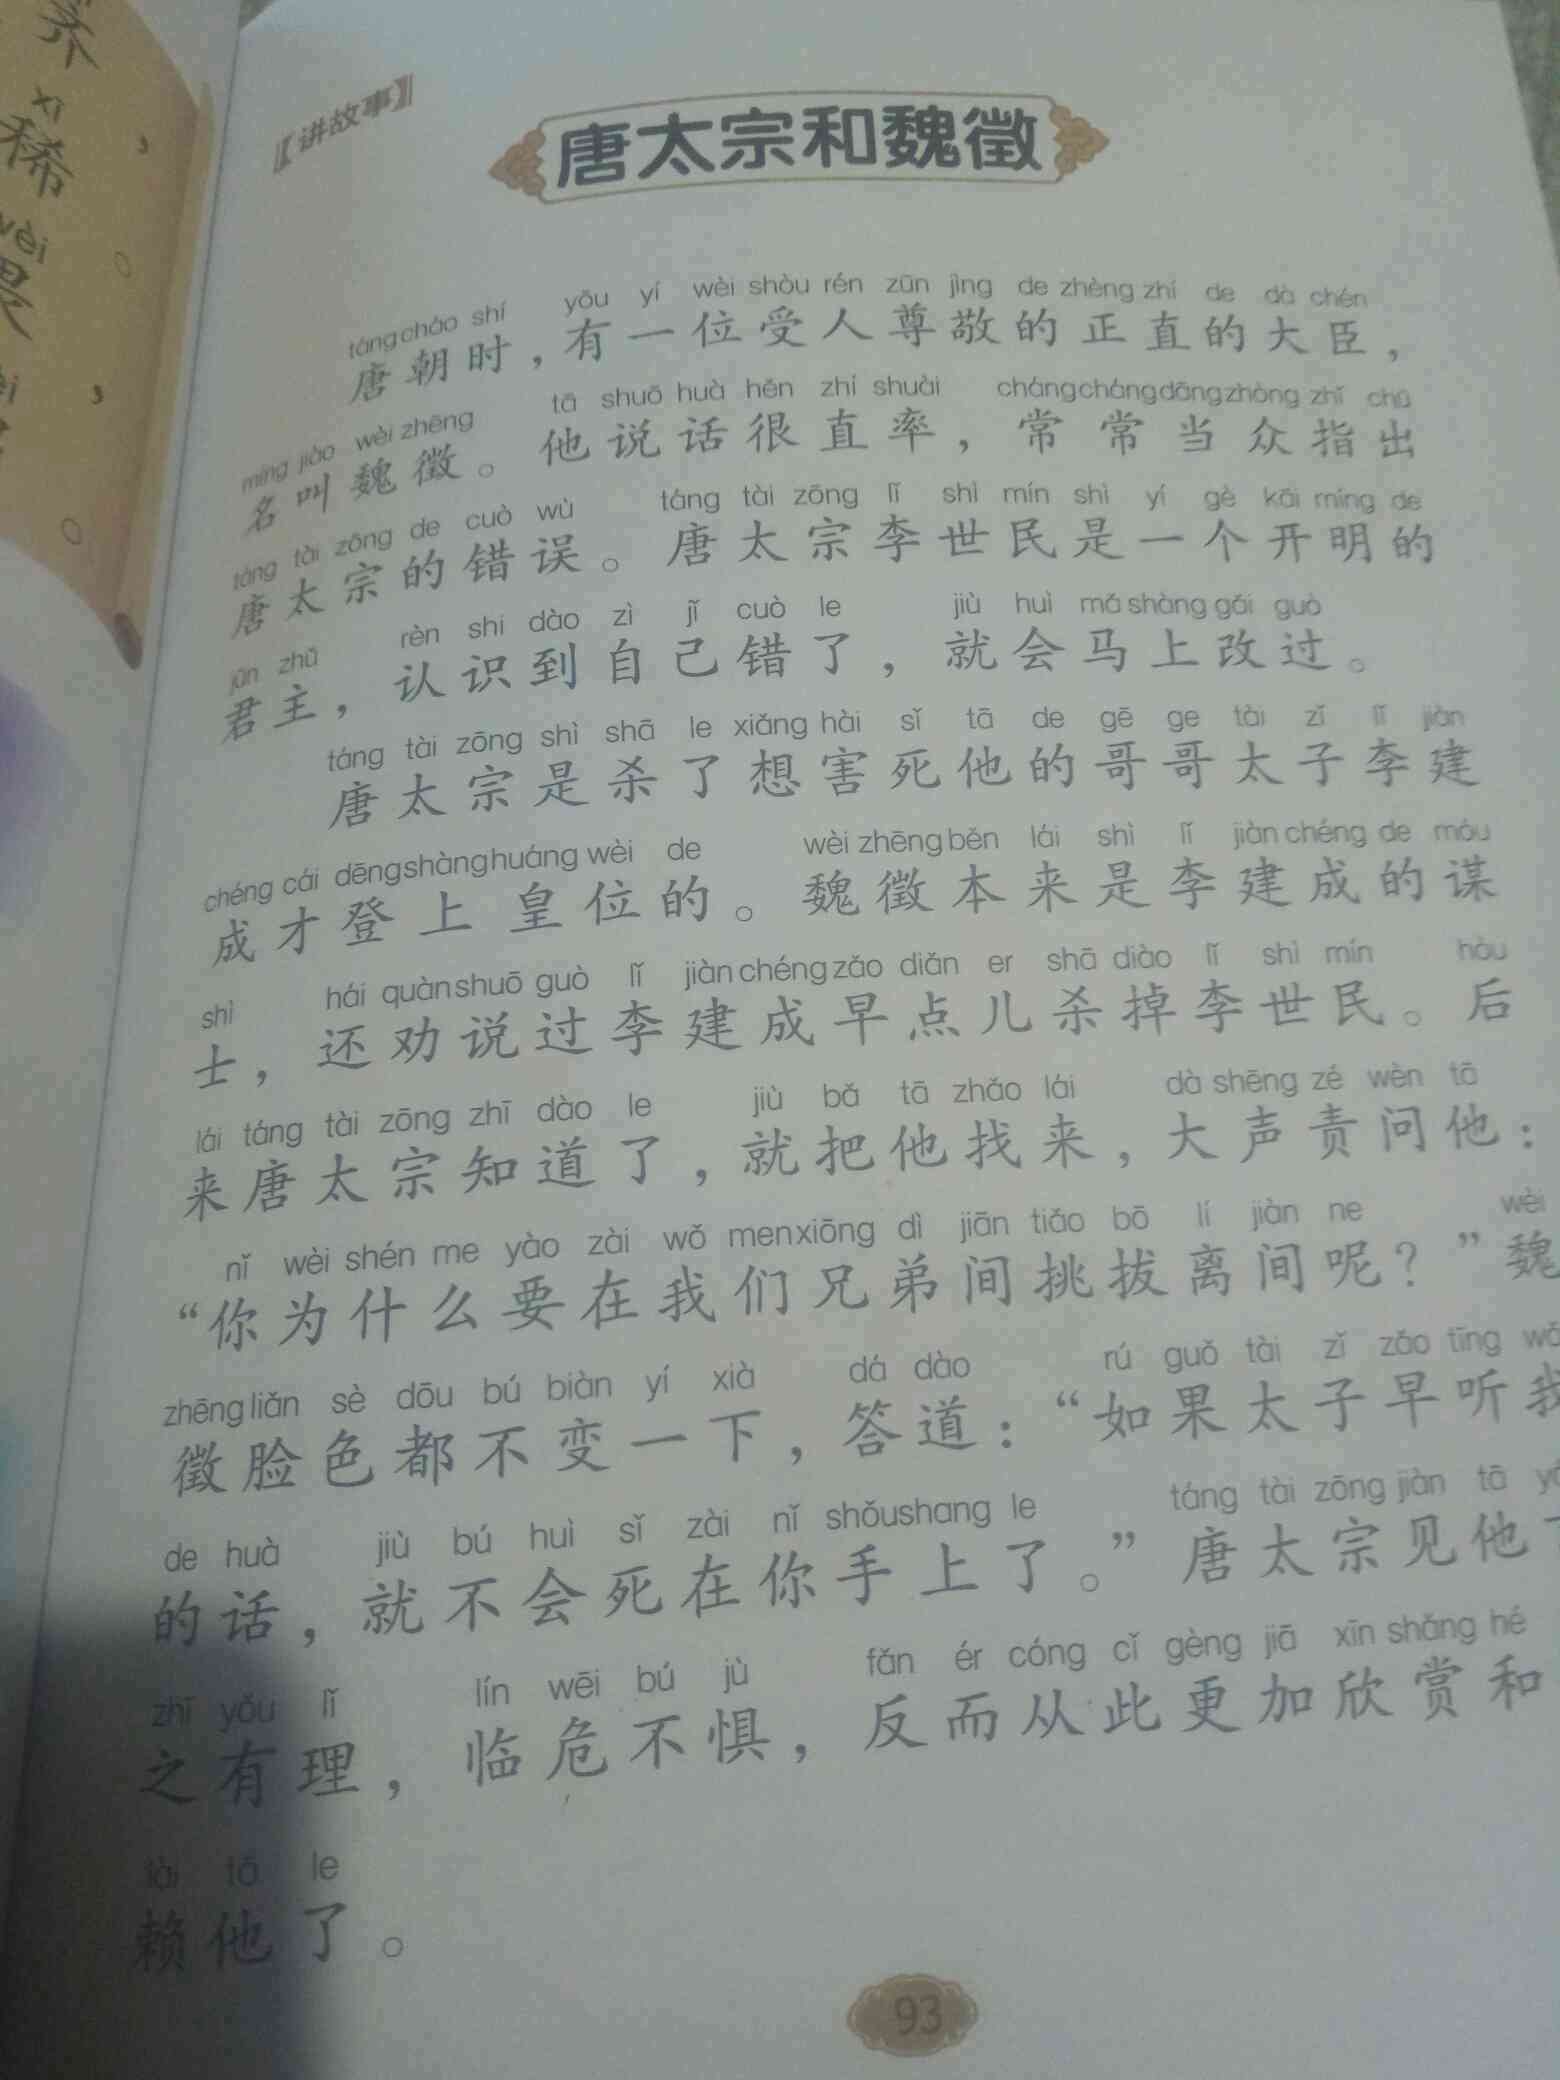 养
xī
稀，
wèi
。
【讲故事】
唐太宗和魏徵
táng cháo shí yǒu yí wèi shòu rén zūn jìng de zhèng zhí de dà chén
唐朝时，有一位受人尊敬的正直的大臣，
míng jiào wèi zhēng tā shuō huà hěn zhí shuài cháng cháng dāng zhòng zhǐ chū
名叫魏徵。他说话很直率，常常当众指出
táng tài zōng de cuò wù táng tài zōng lǐ shì mín shì yí gè kāi míng de
唐太宗的错误。唐太宗李世民是一个开明的
jūn zhǔ rèn shi dào zì jǐ cuò le jiù huì mǎ shàng gǎi guò
君主，认识到自己错了，就会马上改过。
táng tài zōng shì shā le xiǎng hài sǐ tā de gē ge tài zǐ lǐ jiàn
唐太宗是杀了想害死他的哥哥太子李建
chéng cái dēng shàng huáng wèi de wèi zhēng běn lái shì lǐ jiàn chéng de móu
成才登上皇位的。魏徵本来是李建成的谋
shì hái quàn shuō guò lǐ jiàn chéng zǎo diǎn er shā diào lǐ shì mín hòu
士，还劝说过李建成早点儿杀掉李世民。后
lái táng tài zōng zhī dào le jiù bǎ tā zhǎo lái dà shēng zé wèn tā
来唐太宗知道了，就把他找来，大声责问他：
nǐ wèi shén me yào zài wǒ men xiōng dì jiān tiǎo bō lí jiàn ne wèi
“你为什么要在我们兄弟间挑拔离间呢？”魏
zhēng liǎn sè dōu bú biàn yí xià dá dào rú guǒ tài zǐ zǎo tīng wǒ
徵脸色都不变一下，答道：“如果太子早听我
de huà jiù bú huì sǐ zài nǐ shǒu shang le táng tài zōng jiàn tā
的话，就不会死在你手上了。”唐太宗见他
zhī yǒu lǐ lín wēi bú jù fǎn ér cóng cǐ gèng jiā xīn shǎng hé
之有理，临危不惧，反而从此更加欣赏和
lài tā le
赖他了。
93